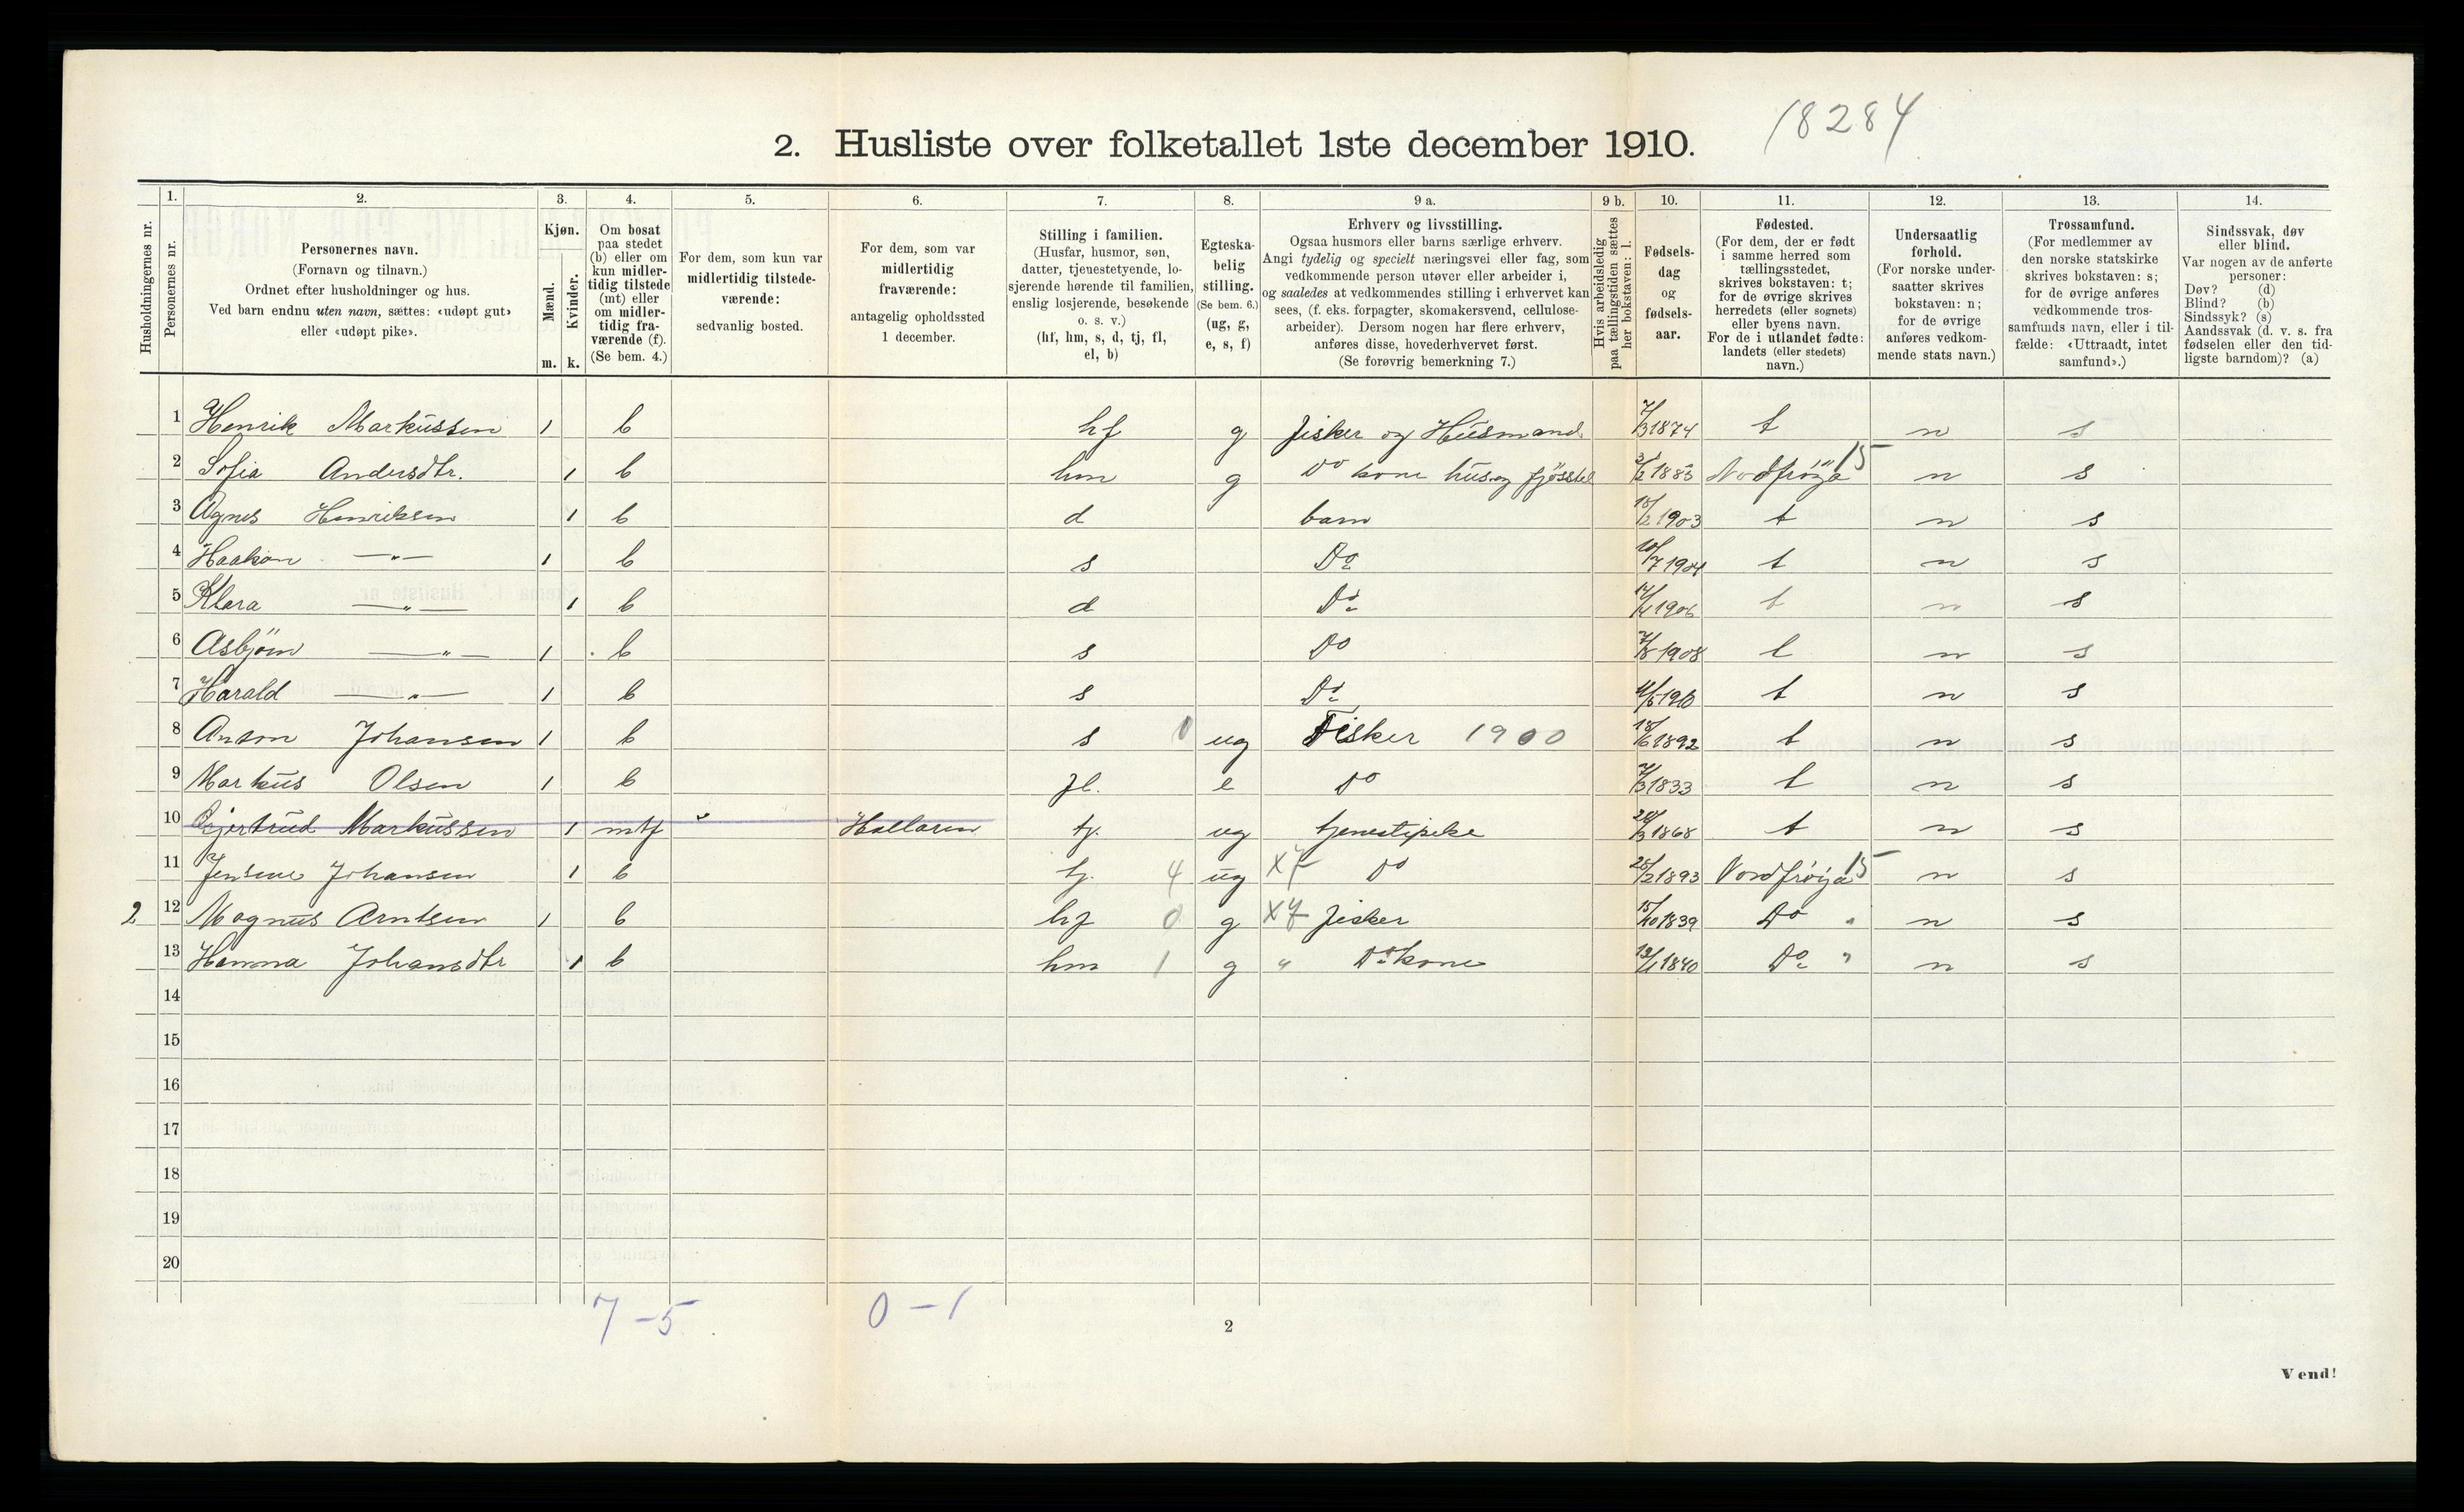 18284
2. Husliste over folketallet 1ste december 1910.
Husholdningernes nr.
1. Personernes nr.
2. Personernes navn. (Fornavn og tilnavn.) Ordnet efter husholdninger og hus. Ved barn endnu uten navn, sættes: «udøpt gut» eller «udøpt pike».
3. Kjøn. Mænd. m. Kvinder. k.
4. Om bosat paa stedet (b) eller om kun midlertidig tilstede (mt) eller om midlertidig fraværende (f). (Se bem. 4.)
5. For dem, som kun var midlertidig tilstedeværende: sedvanlig bosted.
6. For dem, som var midlertidig fraværende: antagelig opholdssted 1 december.
7. Stilling i familien. (Husfar, husmor, søn, datter, tjenestetyende, losjerende hørende til familien, enslig losjerende, besøkende o. s. v.) (hf, hm, s, d, tj, fl, el, b)
8. Egteskabelig stilling. (Se bem. 6.) (ug, g, e, s, f)
9 a. Erhverv og livsstilling. Ogsaa husmors eller barns særlige erhverv. Angi tydelig og specielt næringsvei eller fag, som vedkommende person utøver eller arbeider i, og saaledes at vedkommendes stilling i erhvervet kan sees, (f. eks. forpagter, skomakersvend, cellulosearbeider). Dersom nogen har flere erhverv, anføres disse, hovederhvervet først. (Se forøvrig bemerkning 7.)
9 b. Hvis arbeidsledig paa tællingstiden sættes her bokstaven: l.
10. Fødselsdag og fødselsaar.
11. Fødested. (For dem, der er født i samme herred som tællingsstedet, skrives bokstaven: t; for de øvrige skrives herredets (eller sognets) eller byens navn. For de i utlandet fødte: landets (eller stedets) navn.)
12. Undersaatlig forhold. (For norske undersaatter skrives bokstaven: n; for de øvrige anføres vedkommende stats navn.)
13. Trossamfund. (For medlemmer av den norske statskirke skrives bokstaven: s; for de øvrige anføres vedkommende trossamfunds navn, eller i tilfælde: «Uttraadt, intet samfund».)
14. Sindssvak, døv eller blind. Var nogen av de anførte personer: Døv? (d) Blind? (b) Sindssyk? (s) Aandssvak (d. v. s. fra fødselen eller den tidligste barndom)? (a)
1 Henrik Markussen 1 b hf g fisker og Husmand 7/3 1874 t n s
2 Sofia Andersdtr. 1 b hm g Do kone hus og 1883 Nodfröya 15 n s
3 Agnes Henriksen 1 b d barn 1903 t n s
4 Haakon —"— 1 b s Do 10/7 1904 t n s
5 Klara —"— 1 b d Do 1906 t n s
6 Asbjörn —"— 1 b s Do 7/8 1908 t n s
7 Harald —"— 1 b s Do 1910 t n s
8 Anton Johansen 1 b s 0 ug Fisker 1900 18/6 1892 t n s
9 Markus Olsen 1 b fl. e Do 7/3 1833 t n s
10 Gjertrud Markussen 1 mtf Hallaren tj. ug tjenestepike 1868 t n s
11 Jensine Johansen 1 b tj. 4 ug x7 Do 25/2 1893 Nordfröya 15 n s
2 12 Magnus Arntsen 1 b hf 0 g x7 fisker 15/10 1839 Do " n s
13 Hanna Johansdtr 1 b hm 1 g " Do kone 1840 Do " n s
14
15
16
17
18
19
20
7 – 5 0 – 1
2
Vend!